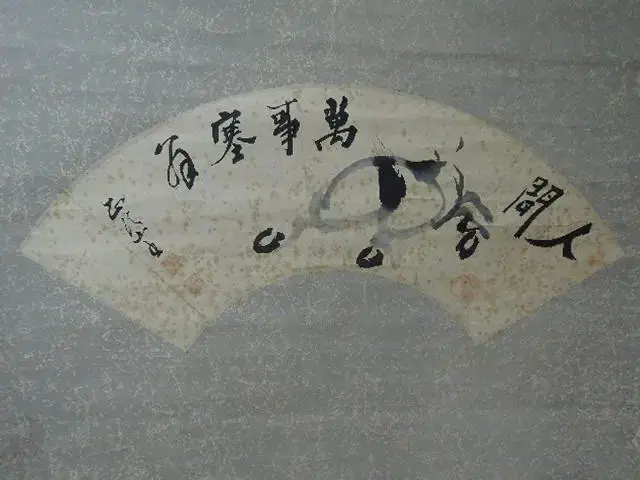 人間萬事塞翁